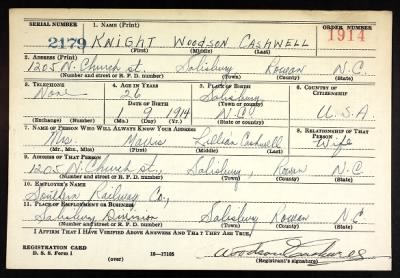 SERIAL NUMBER 1. NAME (Print) ORDER NUMBER
2179 KNIGHT WOODSON CASHWELL 1914
(First) (Middle) (Last)
2. ADDRESS (Print)
1205 N. Church st. Salisbury Rowan N.C.
(Number and street or R. F. D. number) (Town) (County) (State)
3. TELEPHONE 4. AGE IN YEARS 5. PLACE OF BIRTH 6. COUNTRY OF CITIZENSHIP
None 26 Salisbury
DATE OF BIRTH (Town or county)
9 1914 N.C. U.S.A.
(Exchange) (Number) (Mo.) (Day) (Yr.) (State or country)
7. NAME OF PERSON WHO WILL ALWAYS KNOW YOUR ADDRESS 8. RELATIONSHIP OF THAT PERSON
Mrs. Lillian Cashwell Wife
(Mr., Mrs., Miss) (First) (Middle) (Last)
9. ADDRESS OF THAT PERSON
1205 N. Church st., Salisbury, Rowan N.C.
(Number and street or R. F. D. number) (Town) (County) (State)
10. EMPLOYER'S NAME
Southern Railway Co.,
11. PLACE OF EMPLOYMENT OR BUSINESS
Salisbury Division Salisbury Rowan N.C.
(Number and street or R. F. D. number) (Town) (County) (State)
I AFFIRM THAT I HAVE VERIFIED ABOVE ANSWERS AND THAT THEY ARE TRUE.
REGISTRATION CARD
D. S. S. Form 1 16—17105
(Registrant's signature)